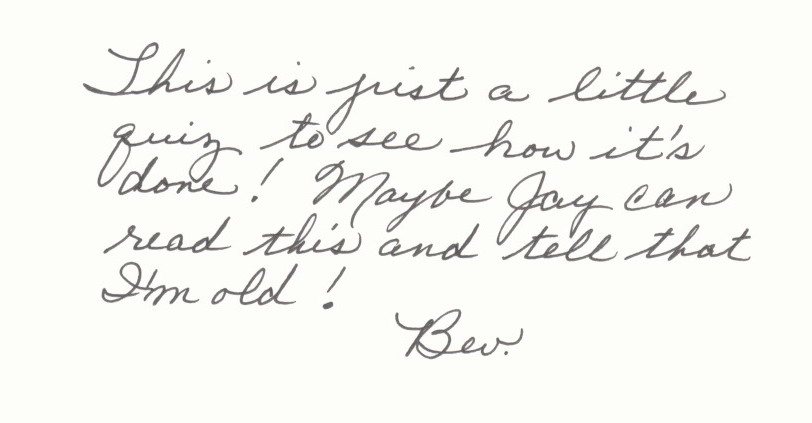 This is just a little
quiz to see how it's
done! Maybe Jay can
read this and tell that
I'm old!
Bev.